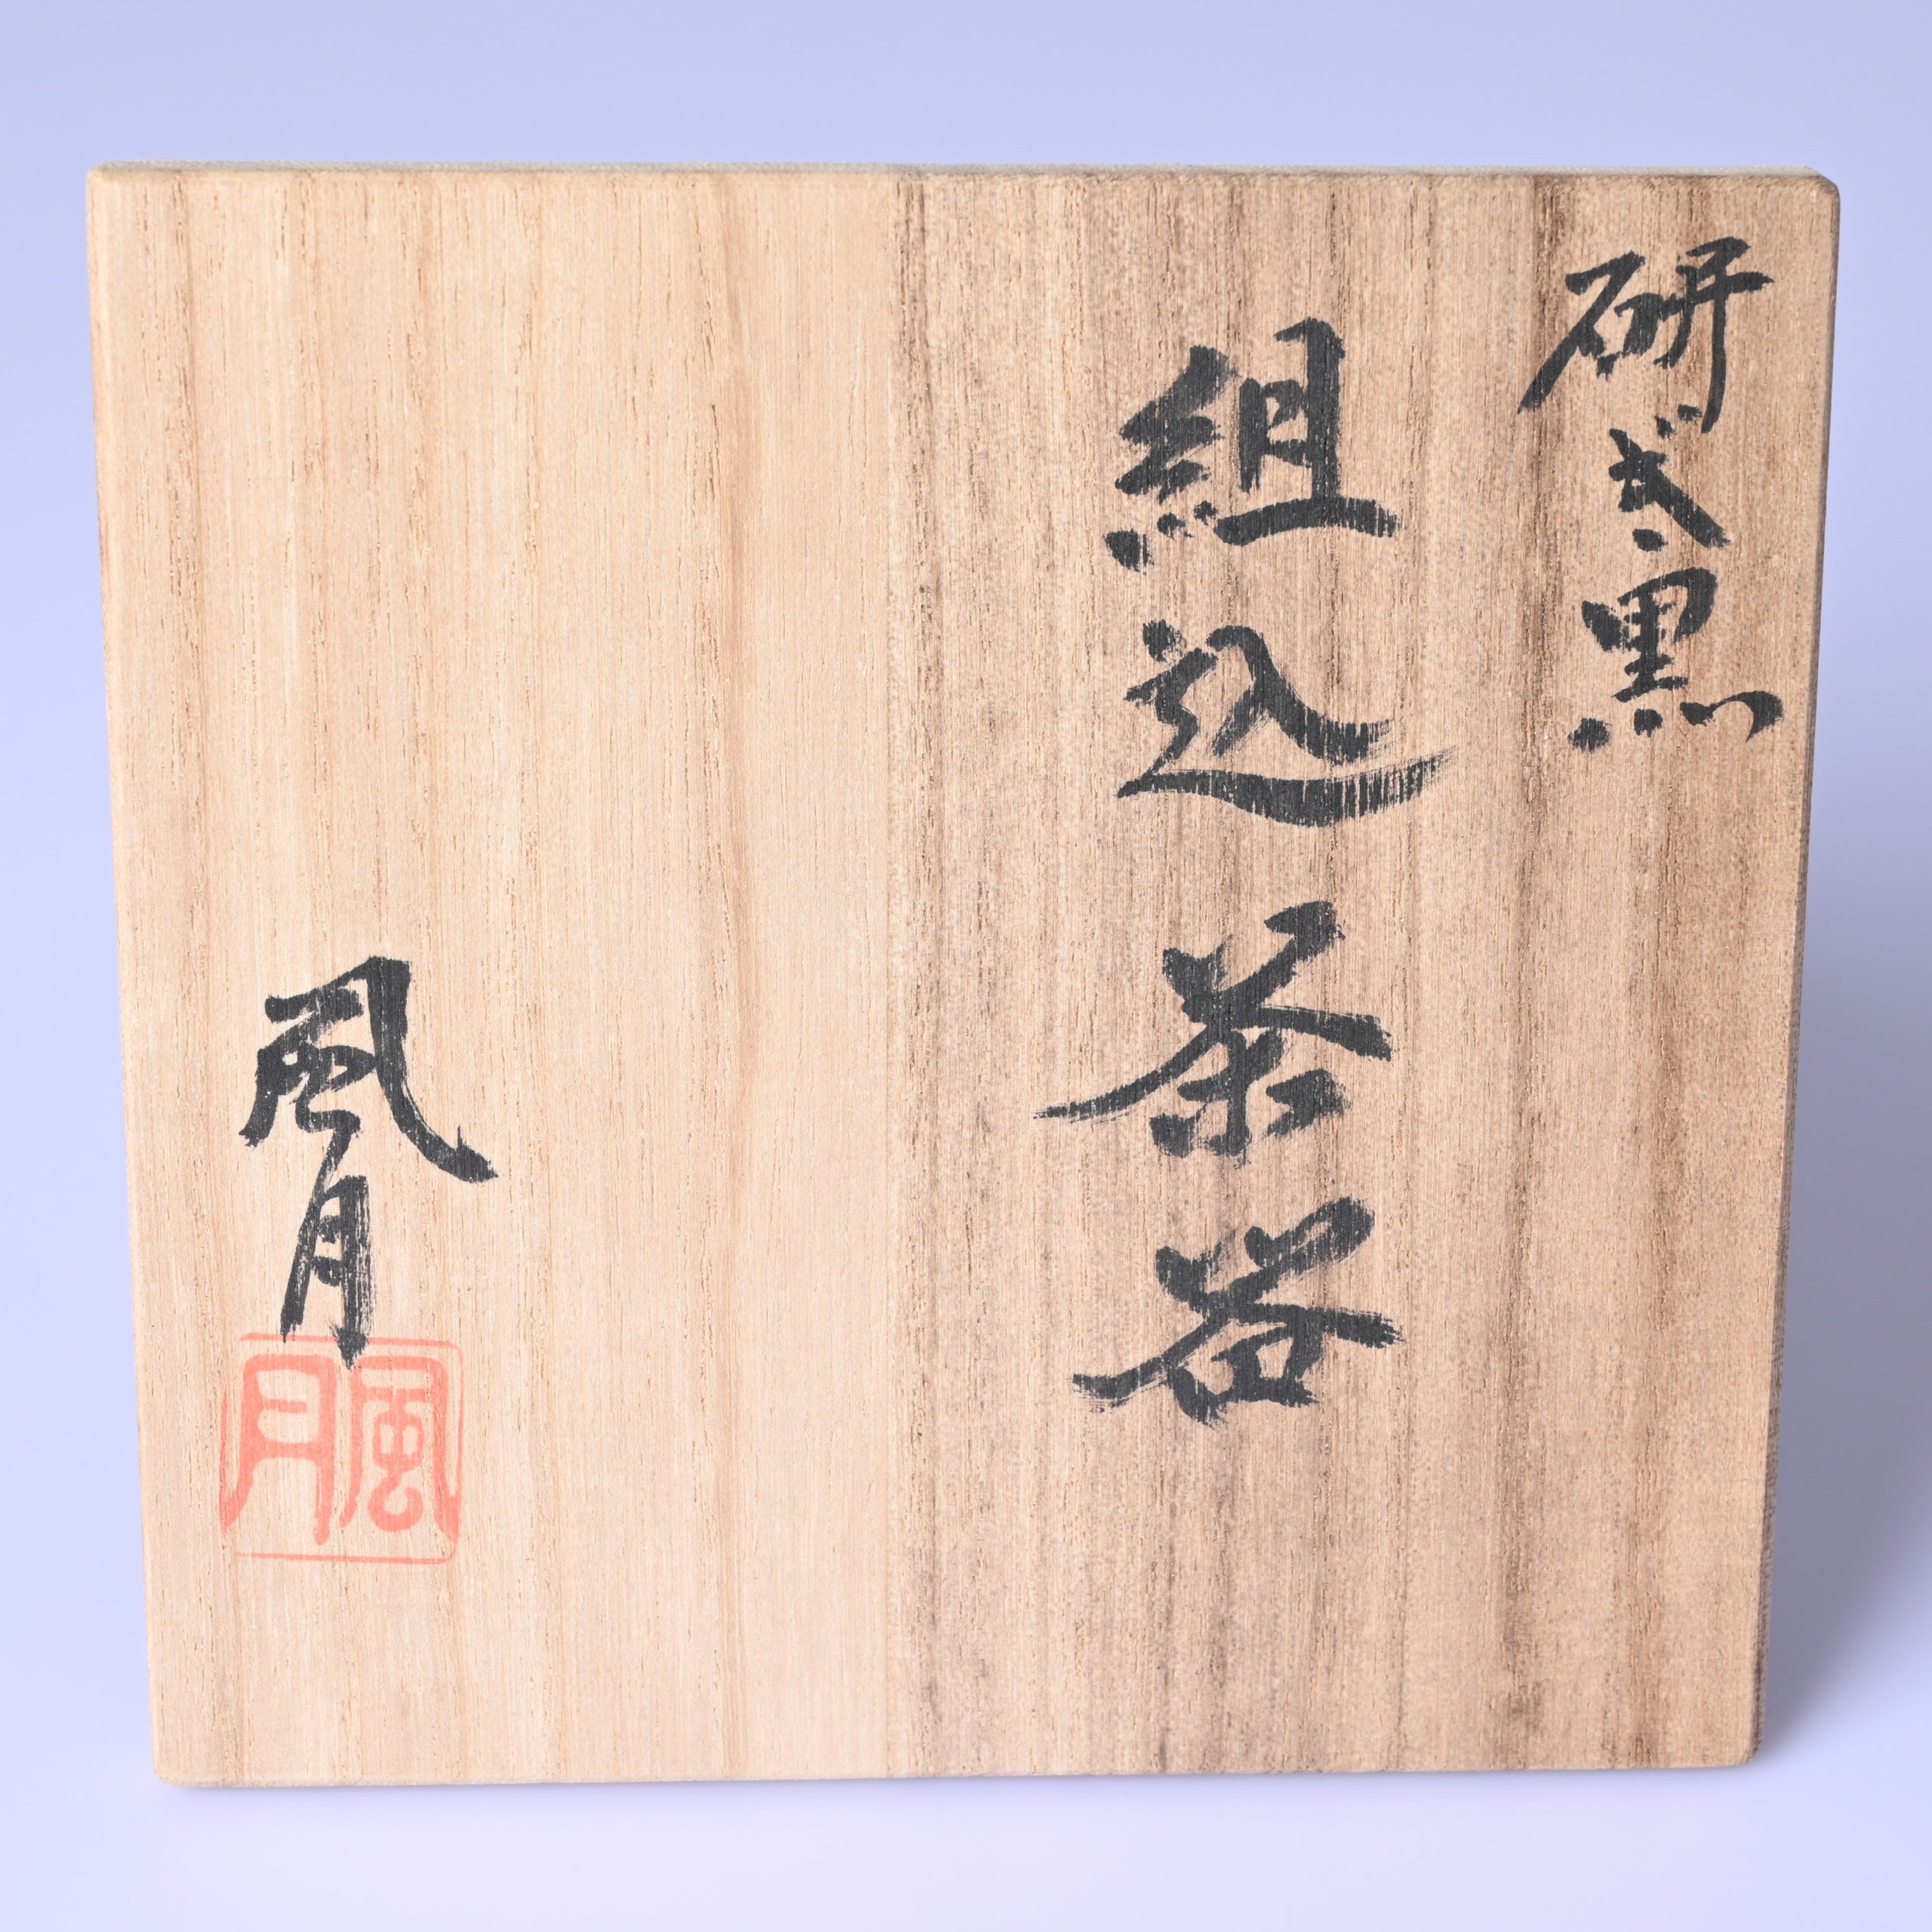 研ぎ黒
組込茶器
風月
風月